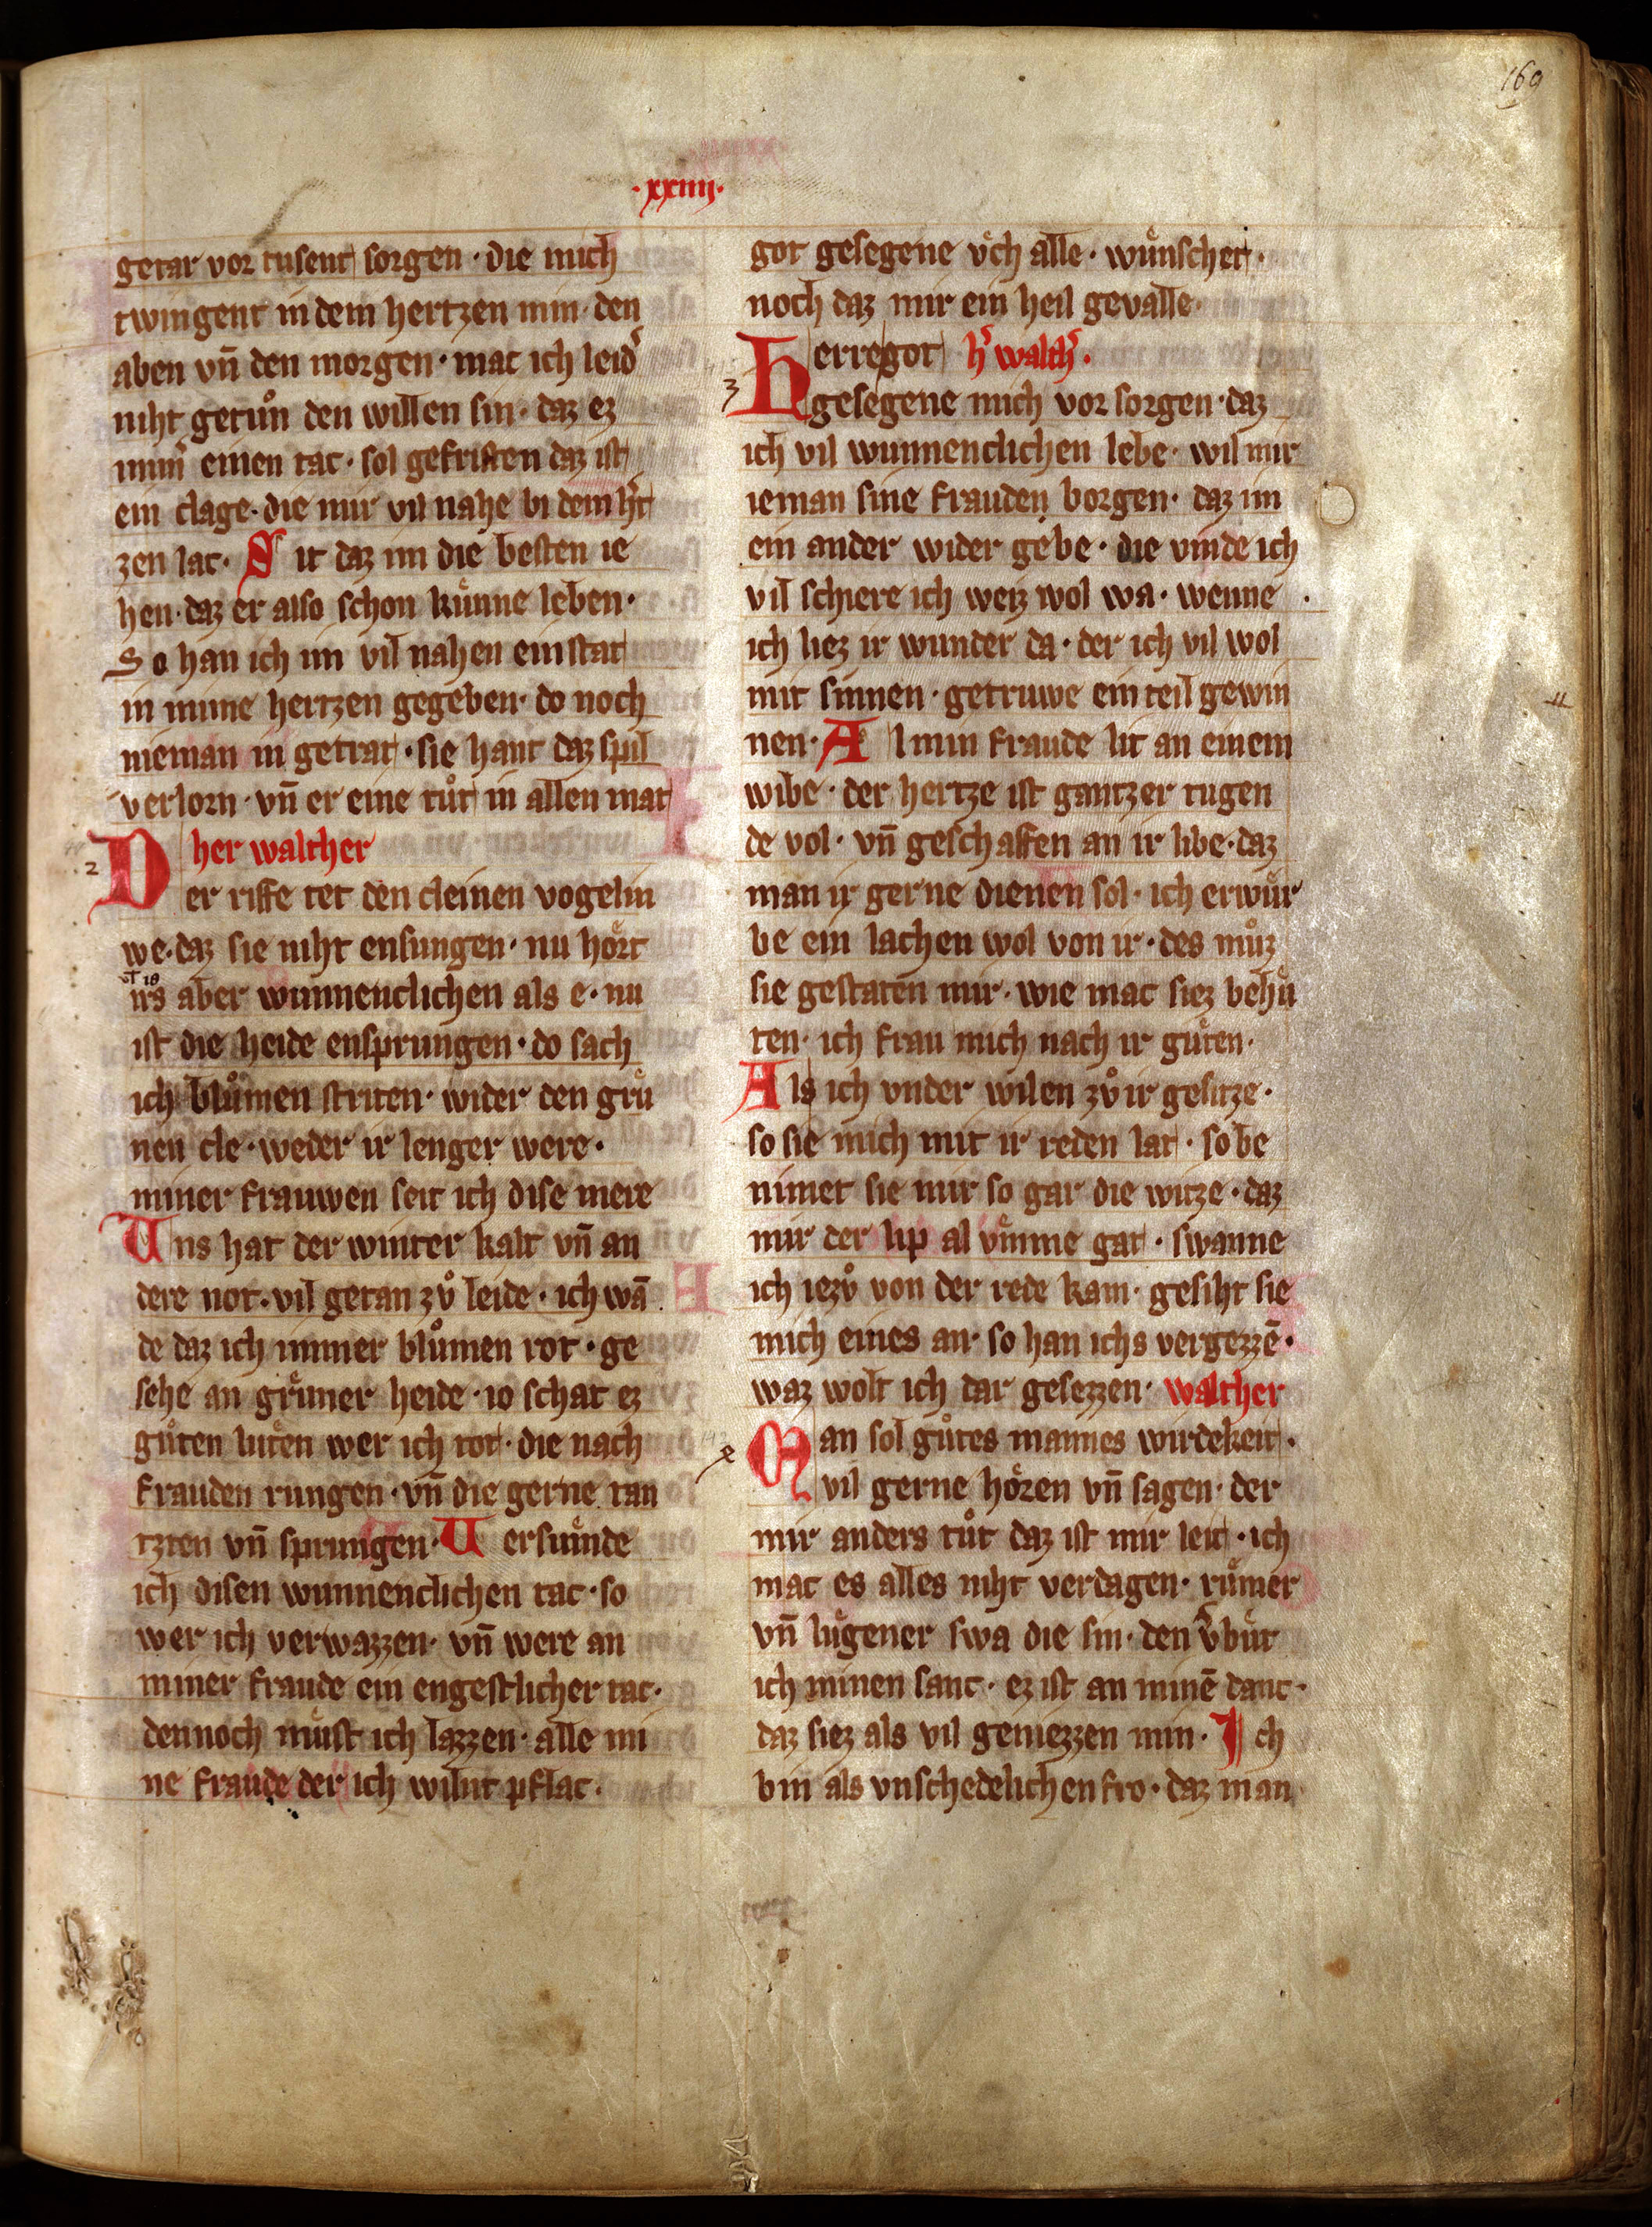 169
·xxiiij·
getar vor tusent sorgen · die mich
twingent in dem hertzen min · den
aben vn̄ den morgen · mac ich leid᷑
niht getuͦn den willen sin · daz ez
ein clage · die mir vil nahe bi dem h᷑t
zen lac · S it daz im die besten ie
hen · daz er also schon kuͤnne leben ·
So han ich im vil nahen ein stat
in mime hertzen gegeben · do noch
nieman in getrat · sie hant daz spil
verlorn · vn̄ er eine tuͦt in allen mat
her walther
2
D er riffe tet den cleinen vogelin
we · daz sie niht ensungen · nu hoͤrt
aber wunnenclichen als e · nu
ist die heide ensprungen · do sach
ich bluͦmen striten · wider den gruͤ
nen cle · weder ir lenger were ·
miner frauwen seit ich dise mere
Uns hat der winter kalt vn̄ an
dere not · vil getan zvͦ leide · ich wā
de daz ich immer bluͦmen rot · ge
sehe an gruͤner heide · io schat ez
guͦten luͤten wer ich tot · die nach
frauden rungen · vn̄ die gerne tan
tzten vn̄ sprungen · U ersuͤmde
ich disen wunnenclichen tac · so
wer ich verwazzen · vn̄ were an
miner fraude ein engestlicher tac ·
dennoch muͤst ich lazzen · alle mi
ne fraude der ich wilnt pflac ·
got gesegene vͤch alle · wuͤnschet ·
noch daz mir ein heil gevalle ·
Herregot h᷑ walth᷑ ·
3
gesegene mich vor sorgen · daz
ich vil wunnenclichen lebe · wil mir
ieman sine frauden borgen · daz im
ein ander wider gebe · die vinde ich
vil schiere ich weiz wol wa · wenne ·
ich liez ir wunder da · der ich vil wol
mit sinnen · getruwe ein teil gewin
nen · A l min fraude lit an einem
wibe · der hertze ist gantzer tugen
de vol · vn̄ geschaffen an ir libe · daz
man ir gerne dienen sol · ich erwuͤr
be ein lachen wol von ir · des muͦz
sie gestaten mir · wie mac siez behuͤ
ten · ich frau mich nach ir guͤten ·
Als ich vnder wilen zvͦ ir gesitze ·
so sie mich mit ir reden lat · so be
nimet sie mir so gar die witze · daz
mir der lip al vͤmme gat · swanne
ich iezvͦ von der rede kam · gesiht sie
mich eines an · so han ichs vergezzē ·
waz wolt ich dar gesezzen · walther
Man sol guͦtes mannes wirdekeit ·
vil gerne hoͤren vn̄ sagen · der
mir anders tuͦt daz ist mir leit · ich
mac es alles niht verdagen · ruͤmer
vn̄ luͤgener swa die sin · den v᷑buͤt
ich minen sanc · ez ist an minē danc ·
daz siez als vil geniezzen min · I ch
bin als vnschedelichen fro · daz man